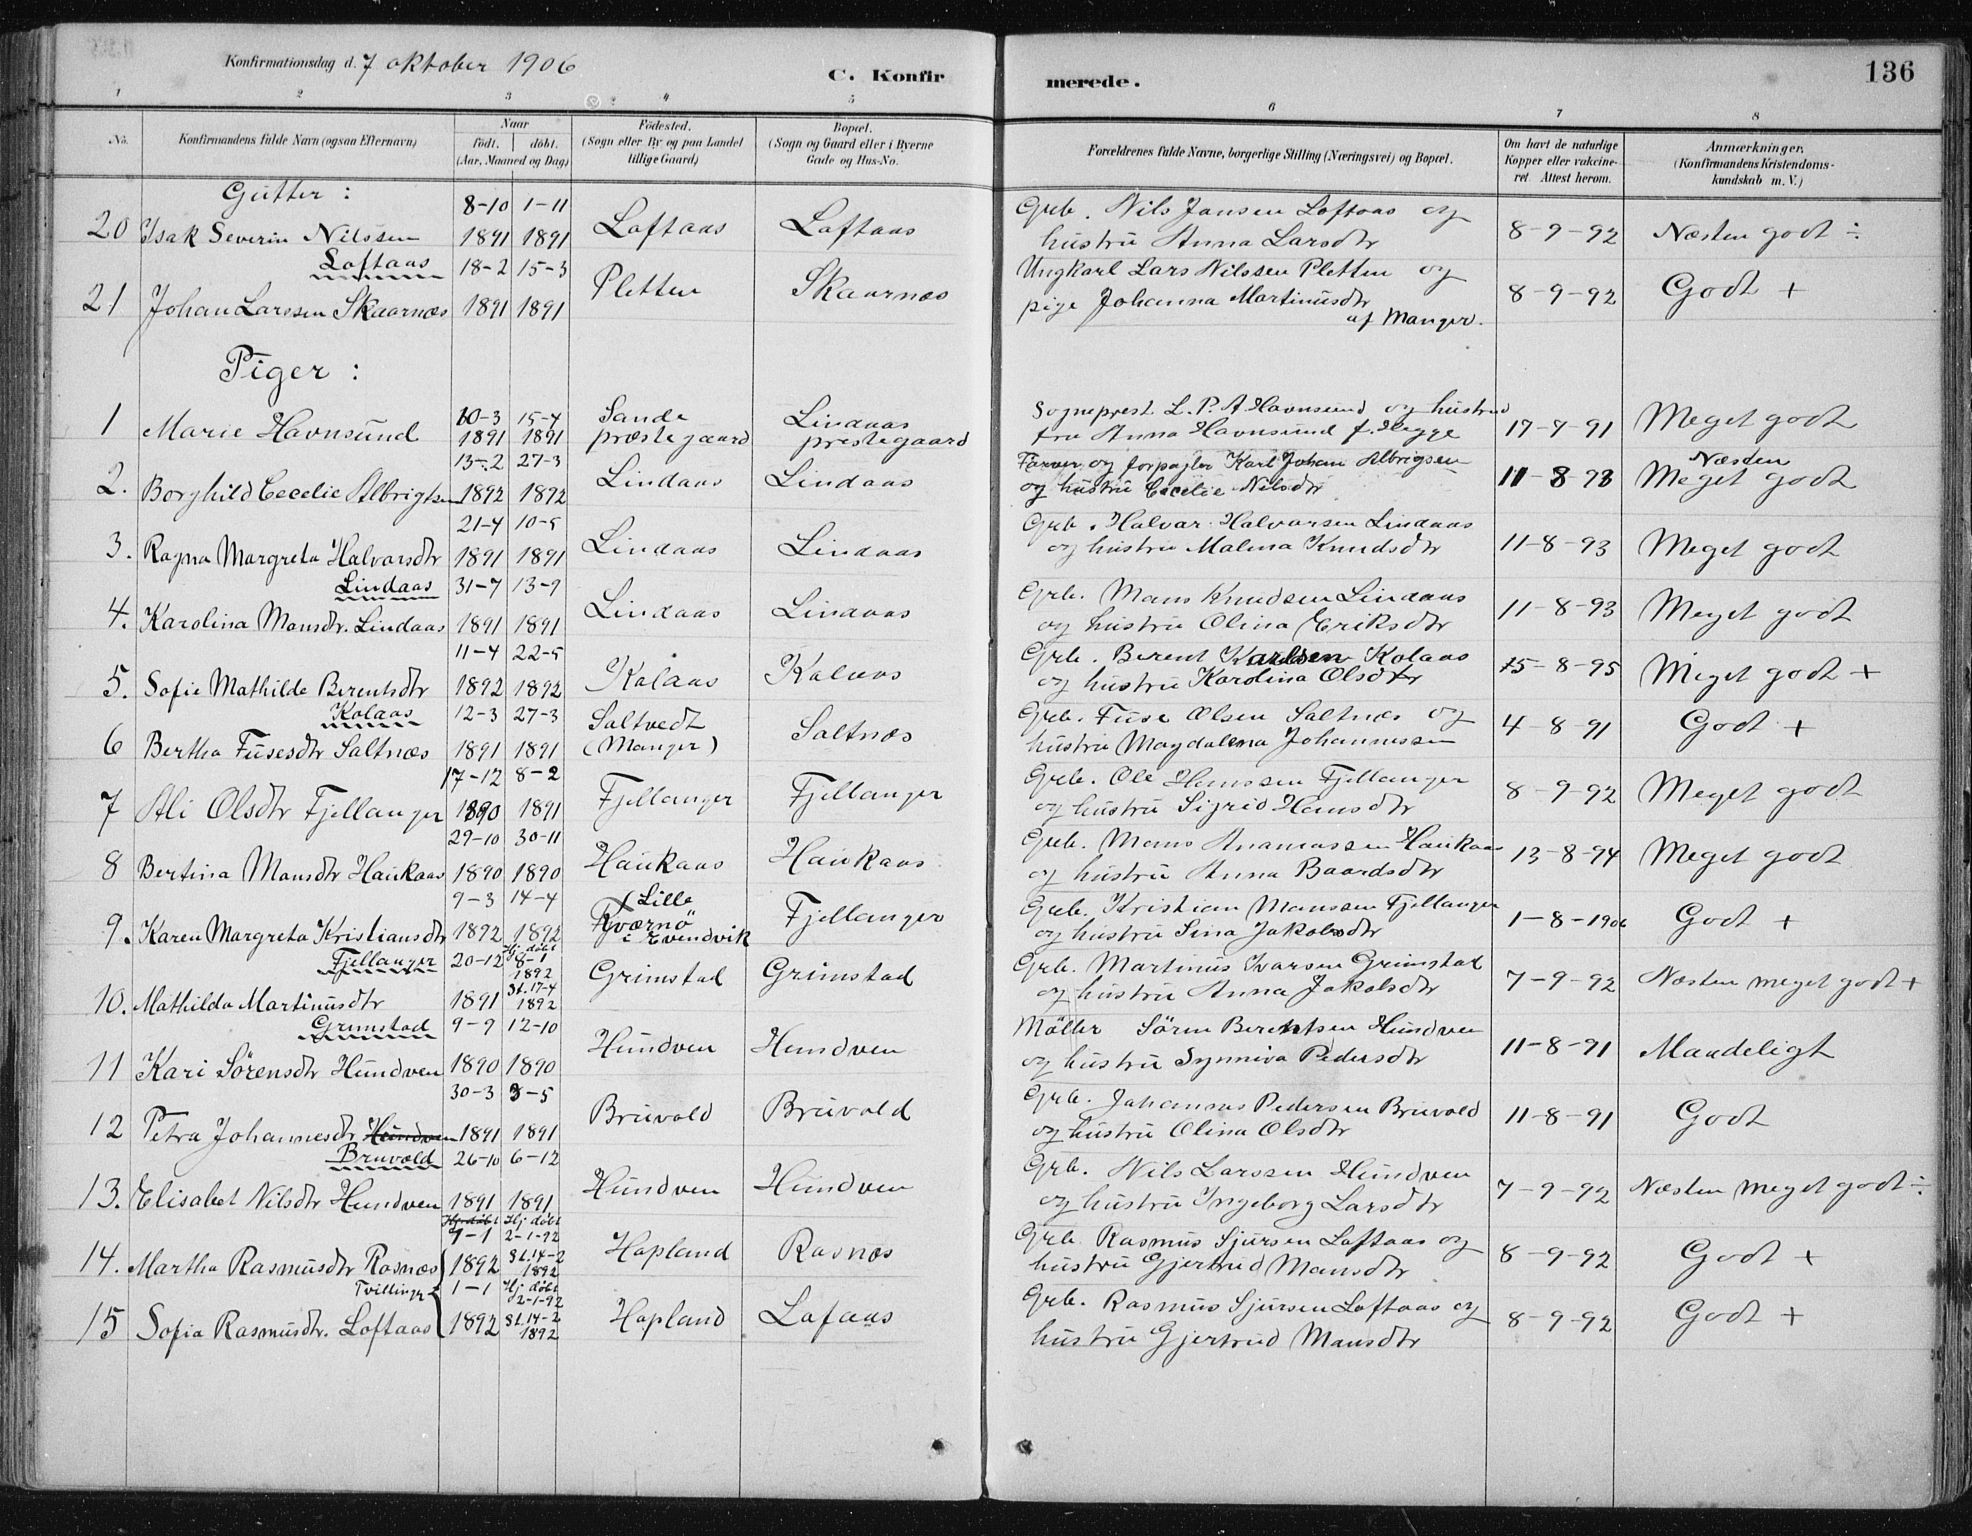 Konfirmationsdag d. 7 oktober 1906
C. Konfir merede.
136
1 2 3 4 5 6 7 8
No.
Konfirmandens fulde Navn (ogsaa Efternavn)
Naar
födt. döbt.
(Aar, Maaned og Dag)
Födested.
(Sogn eller By og paa Landet
tillige Gaard)
Bopæl.
(Sogn og Gaard eller i Byerne
Gade og Hus-No.
Forældrenes fulde Navne, borgerlige Stilling (Næringsvei) og Bopæl.
Om havt de naturlige
Kopper eller vakcine-
ret Attest herom.
Anmærkninger.
(Konfirmandens Kristendoms-
kundskab m. V.)
Gutter :
20 Isak Severin Nilssen Loftaas 8-10 1891 1-11 1891 Loftaas Loftaas Grb. Nils Jansen Loftaas og hustru Anna Larsdtr 8-9-92 Næsten godt ÷
21 Johan Larssen Skaarnæs 18-2 1891 15-3 1891 Pletten Skaarnæs Ungkarl Lars Nilssen Pletten og pige Johanna Martinusdtr af Manger. 8-9-92 Godt +
Piger :
1 Marie Havnsund 10-3 1891 15-4 1891 Sande præstegaard Lindaas prestegaard Sogneprest L. P. A Havnsund og hustru fru Anna Havnsund f. Hegge 17-7-91 Meget godt
2. Borghild Cecelie Albrigtsen 13-2 1892 27-3 1892 Lindaas Lindaas Farver og forpagter Karl Johan Albrigsen og hustru Cecelie Nilsdtr 11-8-93 Næsten Meget godt
3. Ragna Margreta Halvorsdtr Lindaas 21-4 1891 10-5 1891 Lindaas Lindaas Grb. Halvar Halvorsen Lindaas og hustru Malena Knudsdtr 11-8-93 Meget godt
4. Karolina Monsdtr. Lindaas 31-7 1891 13-9 1891 Lindaas Lindaas Grb. Mons Knudsen Lindaas og hustru Olina Eriksdtr 11-8-93 Meget godt
5. Sofie Mathilde Berentsdtr Kolaas 11-4 1892 22-5 1892 Kolaas Kolaas Grb. Berent Karlsen Kolaas og hustru Karolina Olsdtr 15-8-95 Meget godt +
6 Bertha Fusesdtr Saltnæs 12-3 1891 27-3 1891 Saltvedt (Manger) Saltnæs Grb. Fuse Olsen Saltnæs og hustru Magdalena Johannessen 4-8-91 Godt +
7 Ali Olsdtr Fjellanger 17-12 1890 8-2 1891 Fjellanger Fjellanger Grb. Ole Hanssen Fjellanger og hustru Sigrid Hansdtr 8-9-92 Meget godt
8 Bertina Monsdtr Haukaas 29-10 1890 30-11 1890 Haukaas Haukaas Grb. Mons Ananiassen Haukaas og hustru Anna Baardsdtr 13-8-94 Meget godt
9. Karen Margreta Kristiansdtr Fjellanger 9-3 1892 14-4 1892 Lille Kværnö i Evendvik Fjellanger Grb. Kristian Monssen Fjellanger og hustru Sina Jakobsdtr 1-8-1906 Godt +
10. Mathilda Martinusdtr Grimstad 20-12 1891 Hj. döbt 8-1 1892 St. 17-4 1892 Grimstad Grimstad Grb. Martinus Ivarsen Grimstad og hustru Anna Jakobsdtr 7-9-92 Næsten meget godt +
11 Kari Sörensdtr Hundven 9-9 1890 12-10 1890 Hundven Hundven Möller Sören Berentsen Hundven og hustru Synniva Pedersdtr 11-8-91 Maadeligt
12 Petra Johannesdtr Hundven Bruvold 30-3 1891 3-5 1891 Bruvold Bruvold Grb. Johannes Pedersen Bruvold og hustru Olina Olsdtr 11-8-91 Godt
13. Elisabet Nilsdtr Hundven 26-10 1891 6-12 1891 Hundven Hundven Grb. Nils Larssen Hundven og hustru Ingeborg Larsdtr 7-9-92 Næsten meget godt ÷
14. Martha Rasmusdtr Rosnæs Hj. döbt 1-1 1892 Hj döbt 2-1-92 St. 14-2 1892 Hopland Rosnæs Grb. Rasmus Sjursen Loftaas og hustru Gjertrud Monsdtr 8-9-92 Godt +
Tvillinger
15 Sofia Rasmusdtr. Loftaas 1-1 1892 Hj döbt 2-1-92 St. 14-2 1892 Hopland Lofaas Grb. Rasmus Sjursen Loftaas og hustru Gjertrud Monsdtr 8-9-92 Godt +